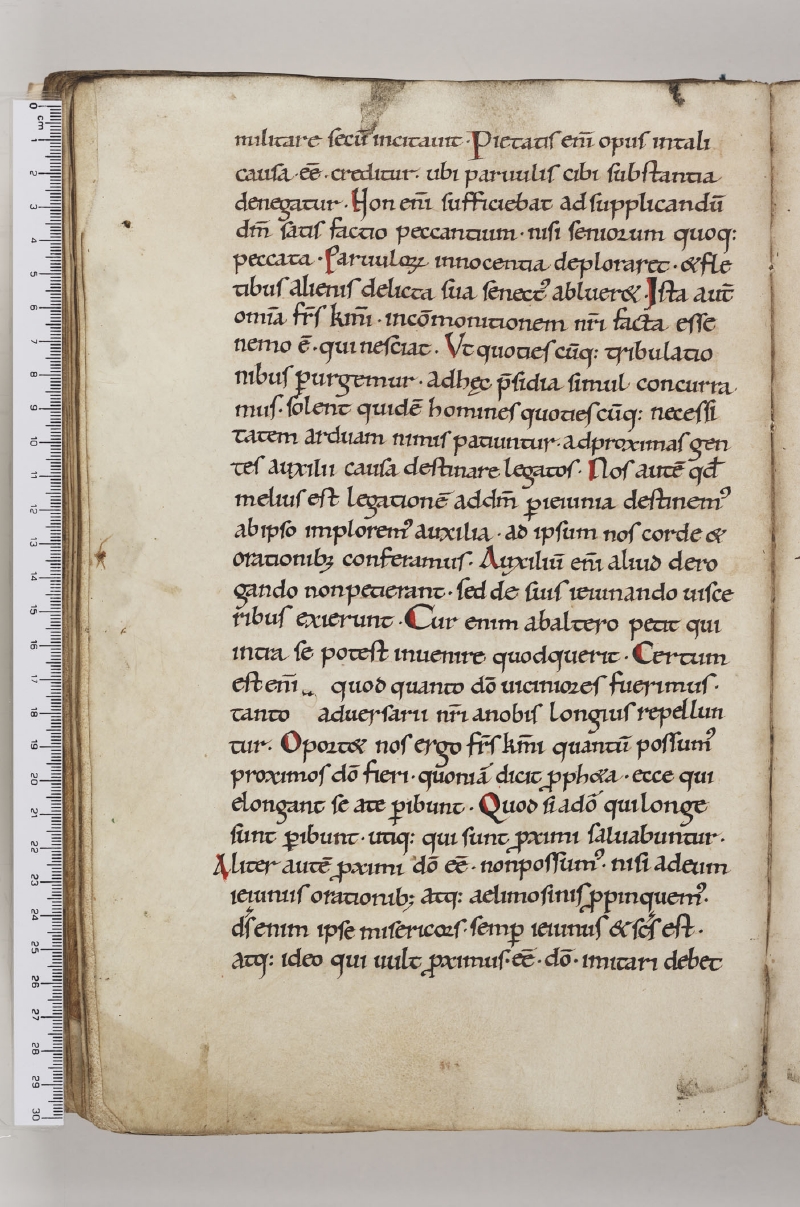 militare secū incitauit · Pietatis em̄ opus intali
causa ēē · creditur · ubi paruulis cibi substantia
denegatur · Non em̄ sufficiebat ad supplicandū
dm̄ satis factio peccantium · nisi seniorum quoq:
peccata · Paruuloꝝ innocentia deploraret · &fle
tibus alienis delicta sua senect᾿ abluer& · Ista aut̄
om̄ia fr̄s km̄i · incōmonitionem nr̄i facta esse
nemo ē · qui nesciat · Vt quotiescūq: tribulatio
nibus ꝑurgemur · adhęc p̄sidia simul concurra
mus · solent quidē homines quotiescūq: necessi
tatem arduam nimis patiuntur · adproximas gen
tes auxilii causa destinare legatos · Nos autē qd̄
melius est legationē addm̄ ꝑieiunia destinem᾿
abipso implorem᾿ auxilia · ad ipsum nos corde &
orationibꝫ conferamus · Auxiliū em̄ aliud dero
gando nonpetierant · sed de suis ieiunando uisce
ribus exierunt · Cur enim abaltero petit qui
intra se potest inuenire quodquerit · Certum
est em̄ quod quanto dō uiciniores fuerimus ·
tanto aduersarii nr̄i anobis longius repellun
tur · Oport& nos ergo fr̄s km̄i quantū possum᾿
proximos dō fieri · quoniā dicit ꝓph&a · ecce qui
elongant se ate ꝑibunt · Quod si adō qui longe
sunt ꝑibunt · utiq: qui sunt ꝓximi saluabuntur ·
Aliter autē ꝓximi dō ēē · nonpossum᾿ · nisi adeum
ieiuniis orationibꝫ atq: aelimosinis ꝓpinquem᾿ ·
ds̄ enim ipse misericors · semꝑ ieiunus & sc̄s est ·
atq: ideo qui uult ꝓximus · ēē · dō · imitari debet
0 cm 1 2 3 4 5 6 7 8 9 10 11 12 13 14 15 16 17 18 19 20 21 22 23 24 25 26 27 28 29 30